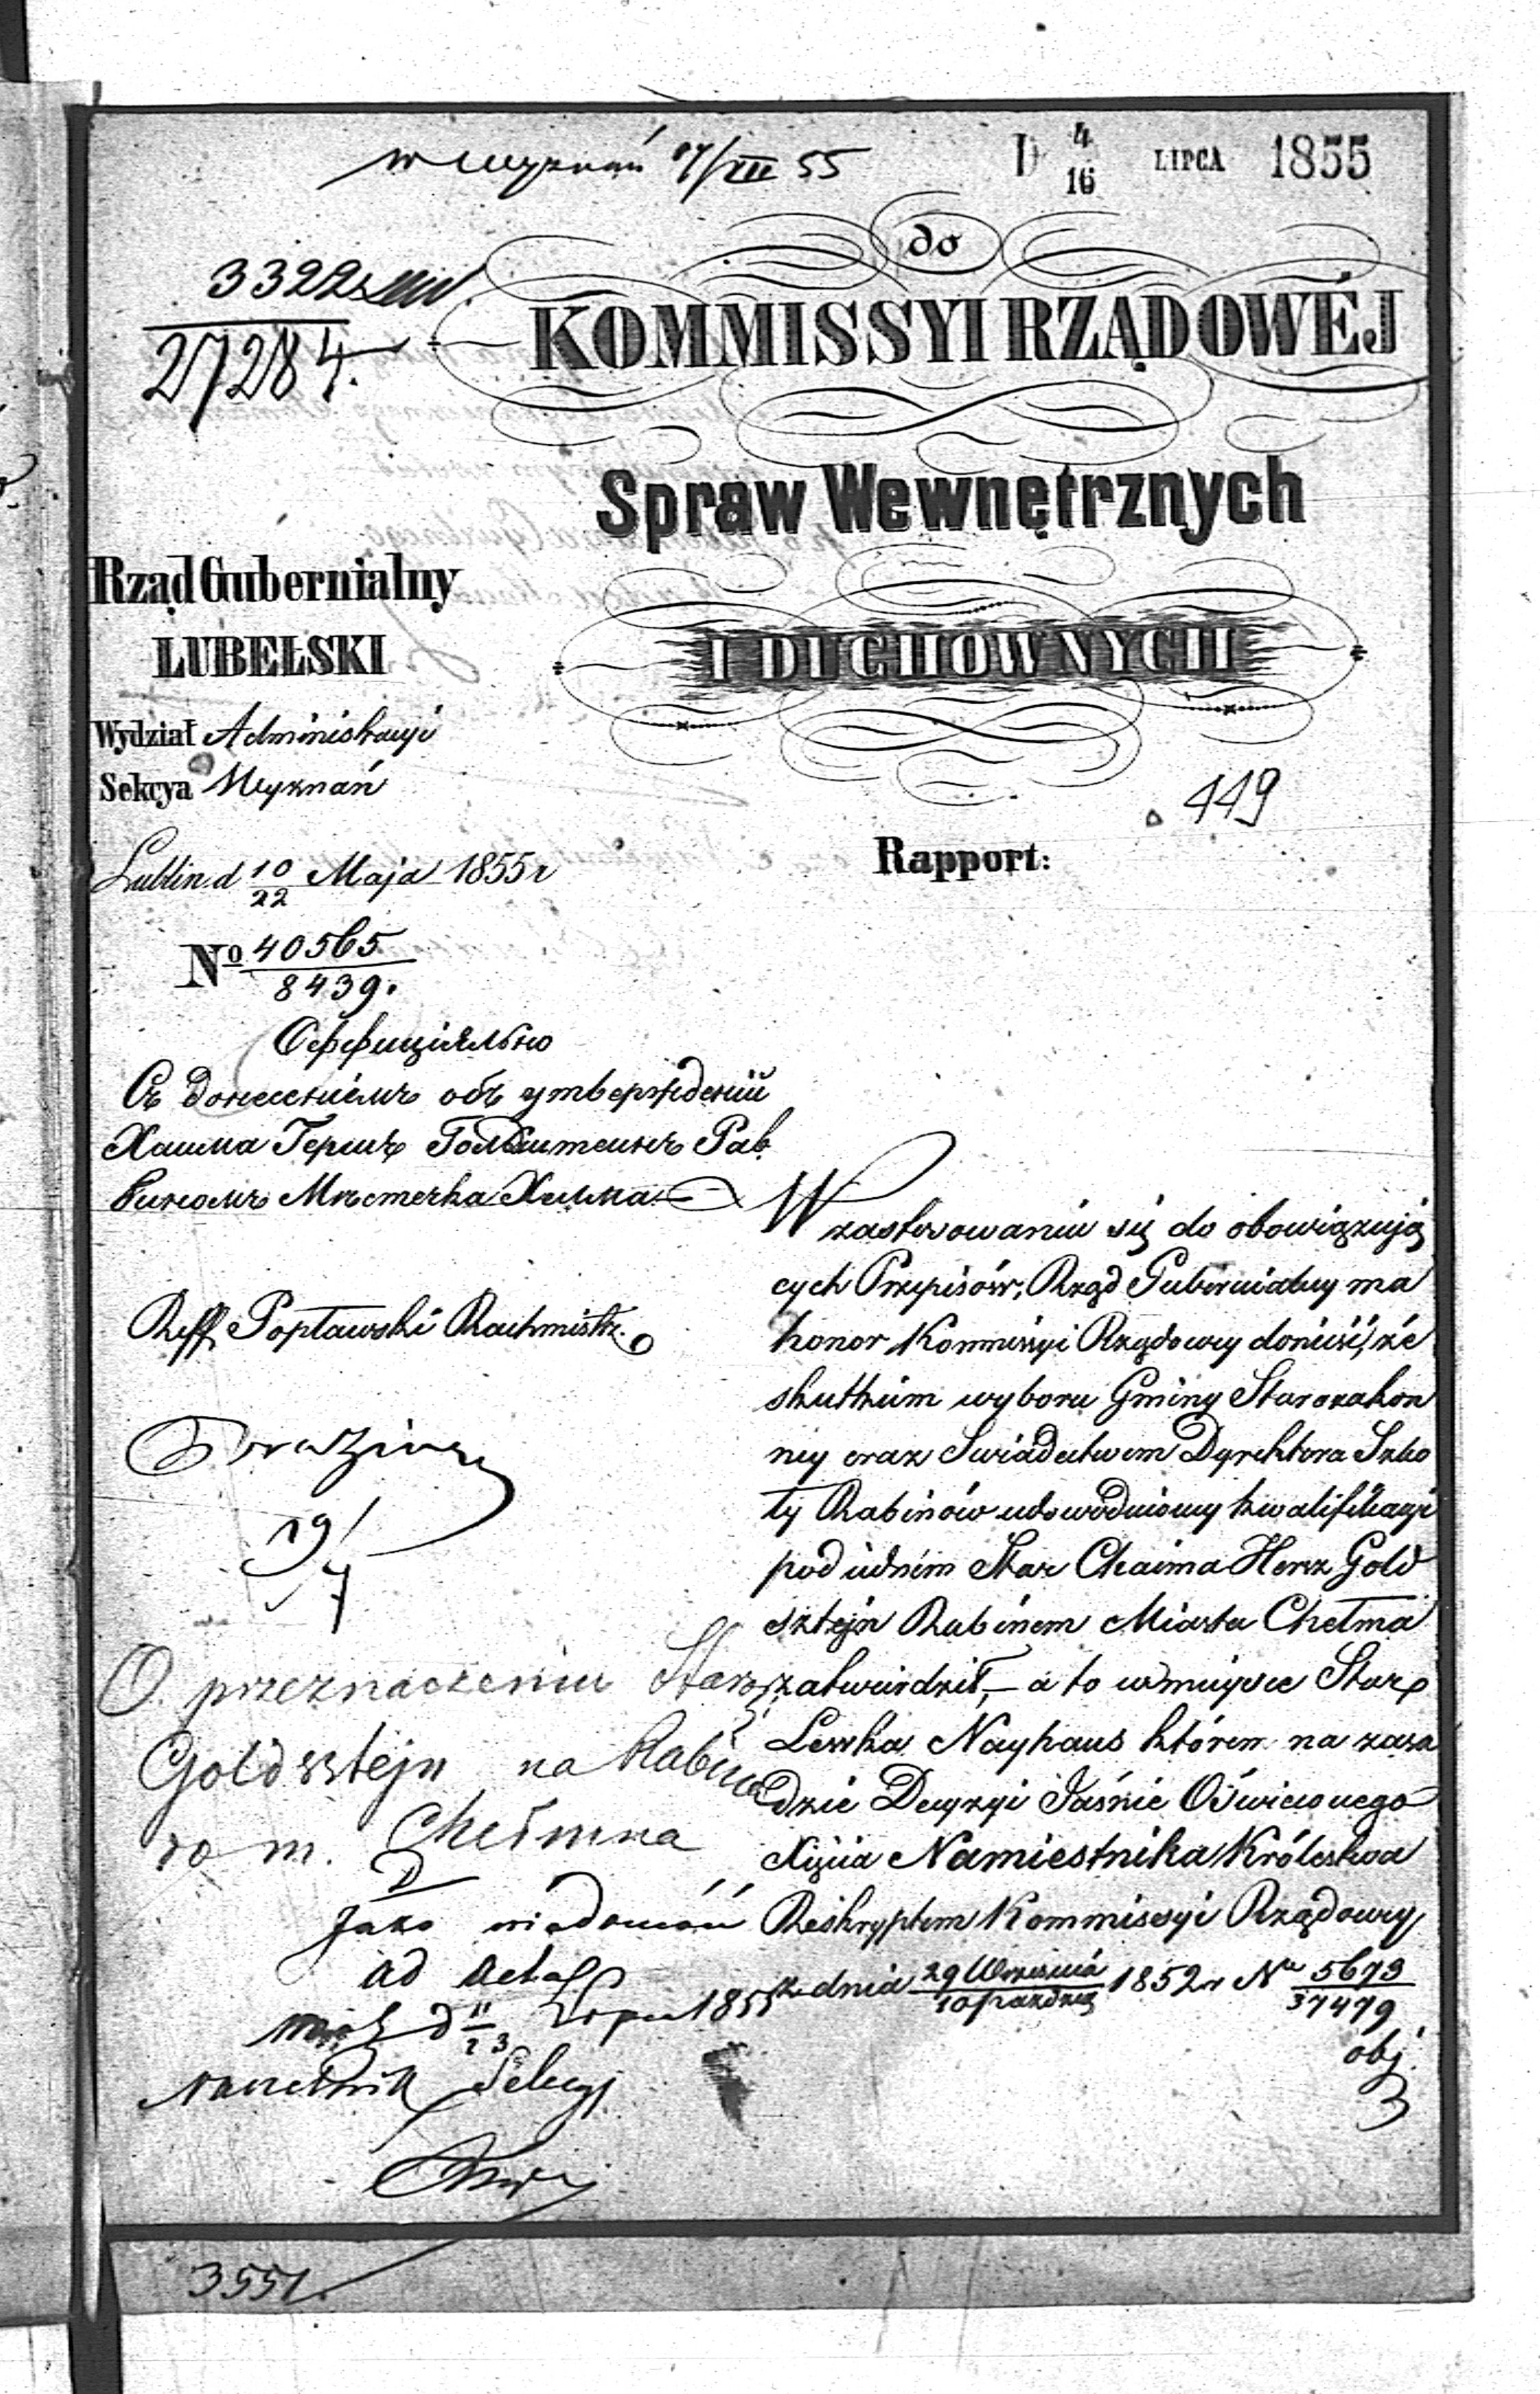 w Wyznań 17/VII 55
D 4/16 LIPCA 1855
do
3322
27284.
KOMMISSYI RZĄDOWÉJ
Spraw Wewnętrznych
I DUCHOWNYCH
Rząd Gubernialny
LUBELSKI
Wydział Administracyi
Sekcya Wyznań
449
Rapport:
Lublin d 10/22 Maja 1855 r
No 40565/8439.
Оффиціяльно
Съ донесеніемъ объ утвержденіи
Хаима Герцъ Гольдштейнъ Раб
биномъ Мѣстечка Хелма
Reff. Popławski Rachmistrz.
19/7
O przeznaczeniu Starz.
Goldsztejn na Rabina
do m. Chełmna
Jako wiadomość
ad acta
d 11/23 Lipca 1855
Naczelnik Sekcyi
W zastosowaniu się do obowiązują
cych Przepisów, Rząd Gubernialny ma
honor Kommissyi Rządowey donieść, że
skutkiem wyboru Gminy Starozakon
ney oraz Swiadectwem Dyrektora Szko
ły Rabinów udowodnioney kwalifikacyi
pod idniem Star Chaima Herz Gold
sztejn Rabinem Miasta Chełma
zatwierdził, – a to w mieysce Star
Lewka Nayhaus którem na zasa
dzie Decyzyi Jaśnie Oświeconego
Xięcia Namiestnika Królestwa
Reskryptem Kommissyi Rządowey
z dnia 29 Września/10 Paźdz 1852 r No 5673/37479
obj.
3551.